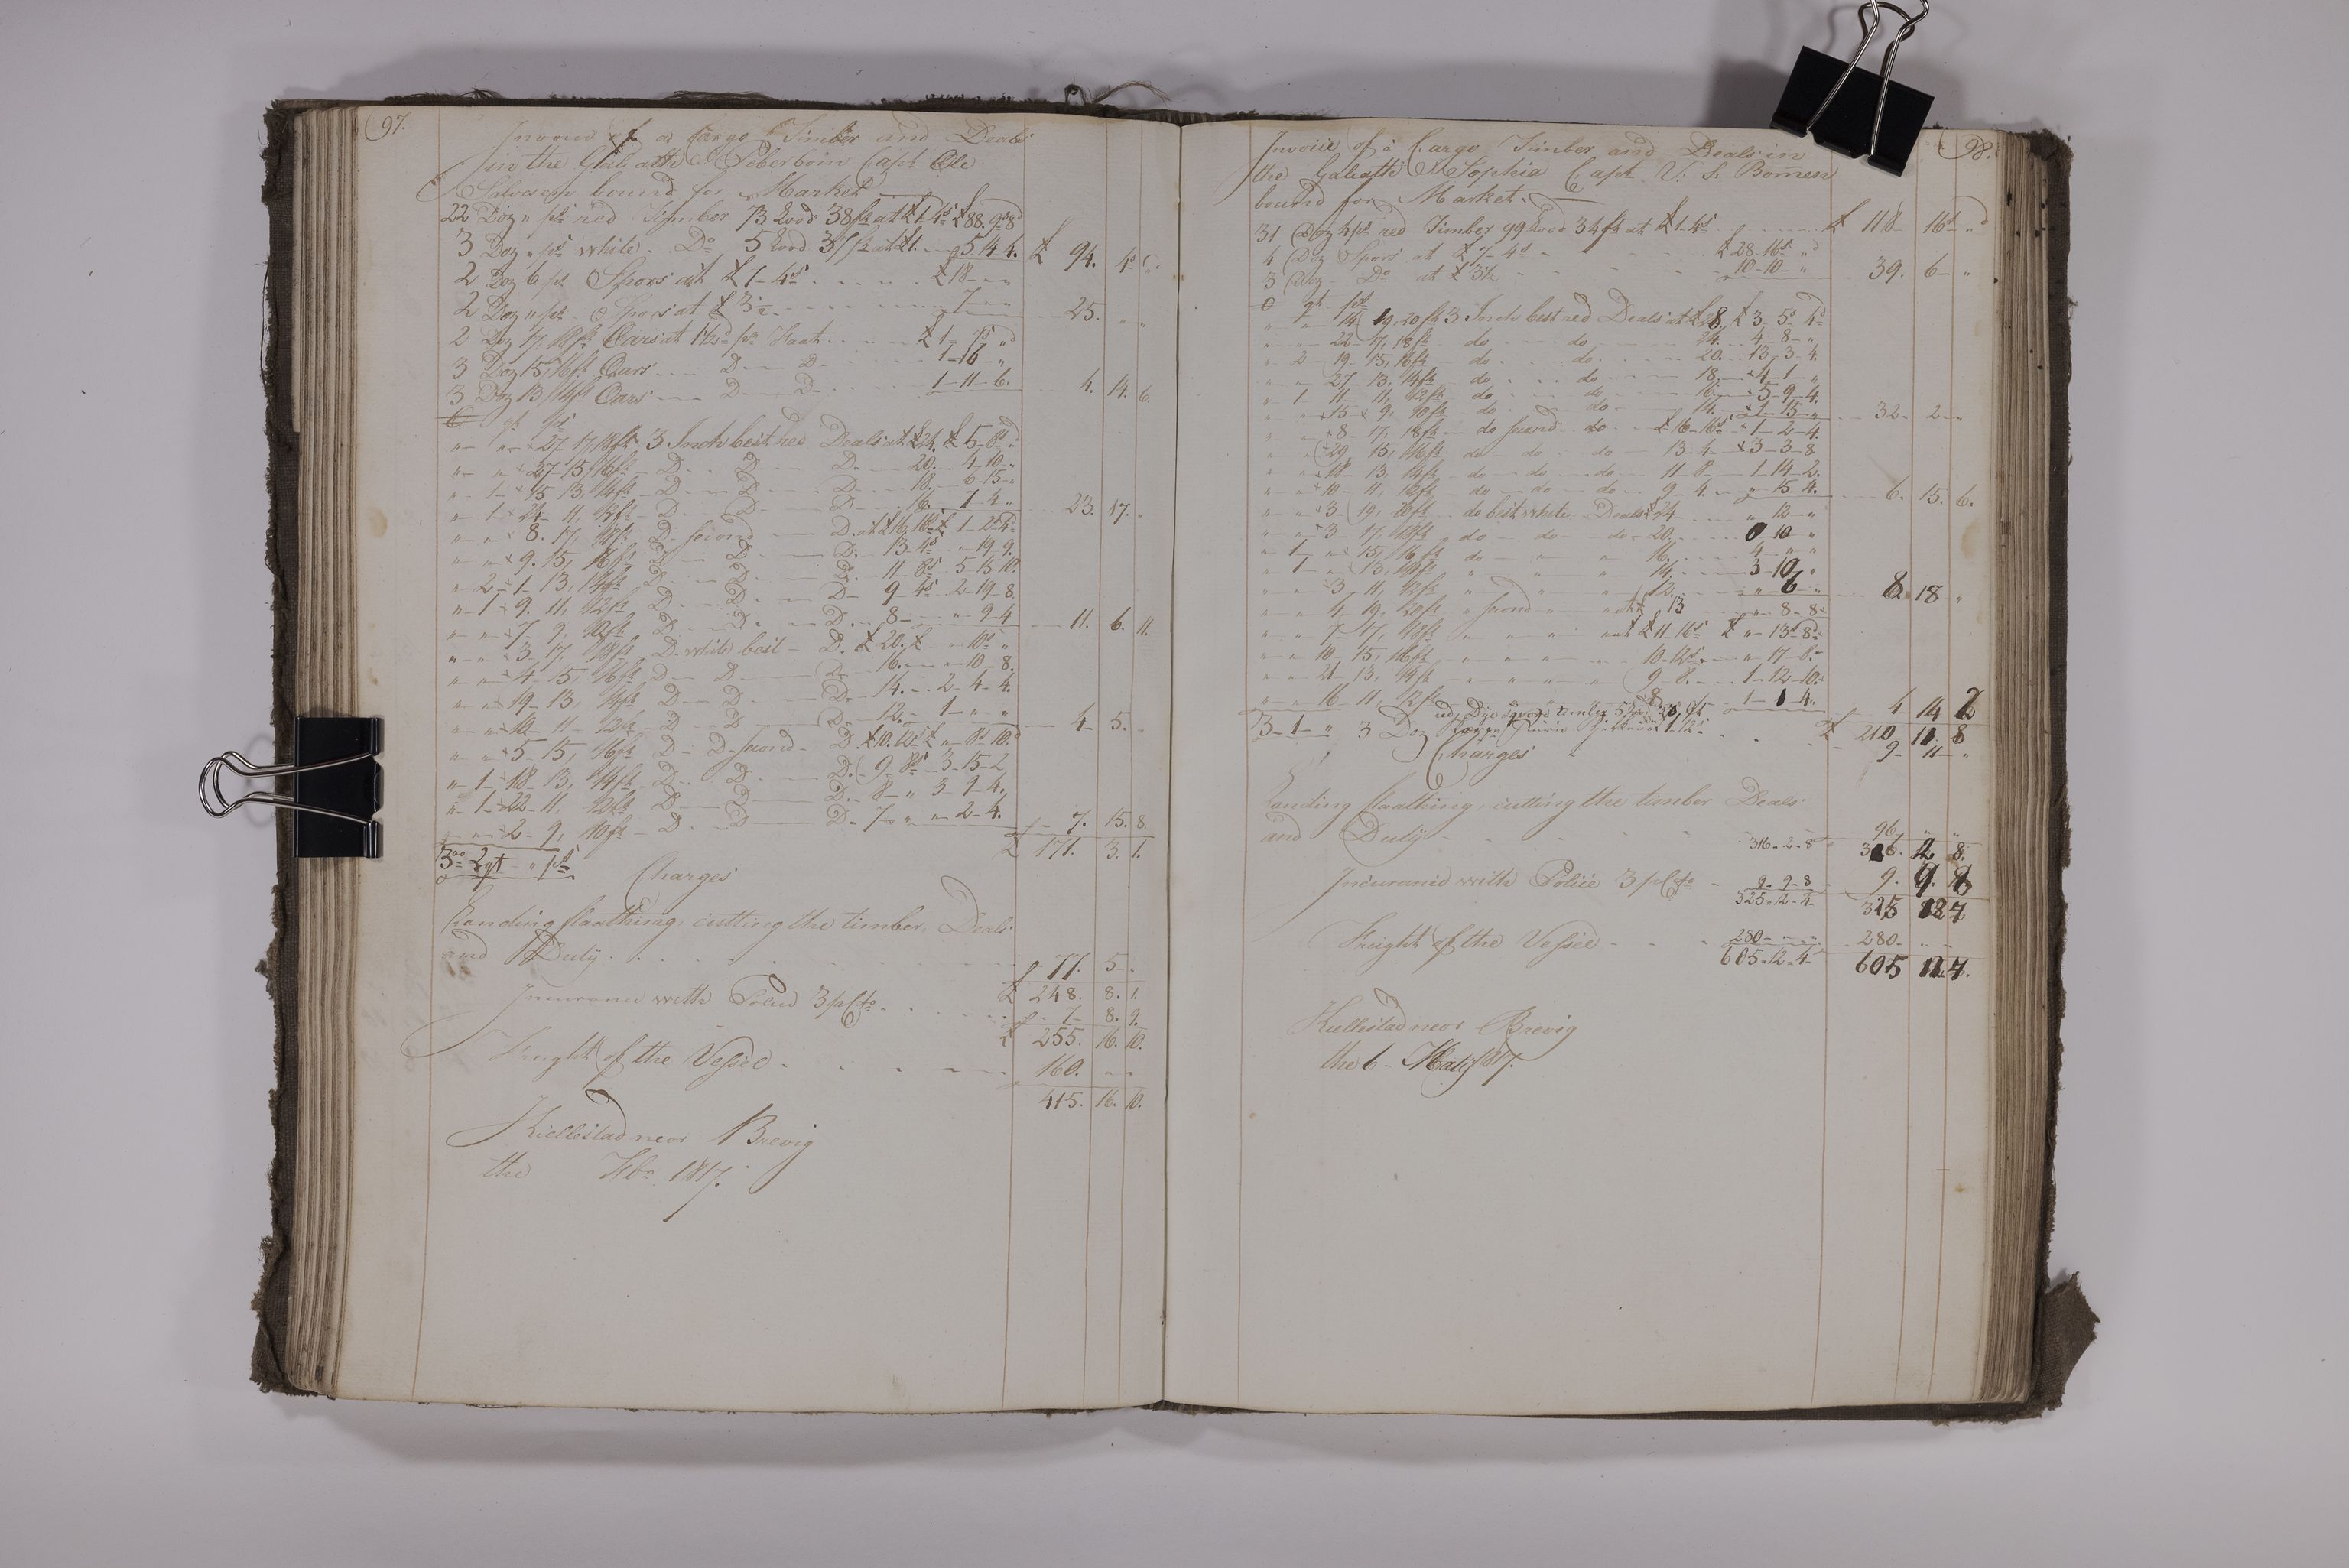 97.
Invoice of a Cargo Timber and Deals
in the Galeath Capt Ole
bound for Market
22 Doz " ps red Timber 73 Load 38 ft at £1-4s £88. 9s 8d
3 Doz " ps white Do 5 Load at £1 5. 14. 4. £ 94. 4s
2 Doz 6 ps Spars at £7-4s £18 - " "
2 Doz " ps Spars at £3½ 7 - " " 25. " "
2 Doz 17, 18 ft Oars at ps £1 - 7s "d
3 Doz 15, 16 ft Oars D. D. 1-16 "
3 Doz 13, 14 ft Oars D. D. 1-11-6. 4. 14. 6.
C qt ps
" " 27 17, 18 ft 3 Inch best red Deals at £24. £5-8s "
" " 27 15, 16 ft D. D. D. 20. 4-10 "
" 1 - 15 13, 14 ft D. D. D. 18. 6-15 "
" 1 - 24 - 11, 12 ft D. D. D. 16. 7-4 " 23. 17. "
" " 8. 17, 18 ft D. second D. at £16. 16s £ 1-2-4
" " 9. 15, 16 ft D. D. D. 13-4s " 19. 9.
" 2 - 1 - 13, 14 ft D. D. D. 11-8s 5-15-10.
" 1 - 9. 11, 12 ft D. D. D. 9-4s 2-19-8.
" " 7 - 9, 10 ft D. D. D. 8 - " 9-4 11. 6. 11.
" " 3 - 17, 18 ft D. white best D. £20. £ " 10s "
" " 4 - 15, 16 ft D. D. D. 16. " 10-8.
" " 19 - 13, 14 ft D. D. D. 14. 2-4-4.
" " 10 - 11 - 12 ft D. D. D. 12. 1 - " " 4 - 5. "
" " 5 - 15, 16 ft D. D. second D. £10. 12s £ " 8s 10d
" 1 - 18 - 13, 14 ft D. D. D. 9-8s 3-15-2
" 1 - 22 - 11, 12 ft D. D. D. 8 - " 3-9-4.
" " 2 - 9, 10 ft D. D. D. 7 " " 2-4. 7. 15. 8.
3 2 qt " ps £ 171. 3. 1.
Charges
Landing floathing, cutting the timber, Deals
and Duty 77. 5 "
£ 248. 8. 1.
Insurance with Police 3 pCto 7 - 8. 9.
£ 255. 16. 10.
Freight of the Vessel 160. " "
415. 16. 10.
Kiellestad near Brevig
the Fbr 1817.
98.
Invoice of a Cargo Timber and Deals in
the Galeath Sophia Capt Bomen
bound for Market.
31 Doz 4 ps red Timber 99 Load 34 ft at £1-4s £ 118 - 16s "d
4 Doz Spars at £7-4s £28-16s "d
3 Doz Do at £3½ 10-10 - " 39. 6 - "
C qt ps
" " 14 19, 20 ft 3 Inch best red Deals at £28. £3-5s-4d
" " 22 - 17, 18 ft do do 24. 4-8 - "
" 2 - 19 - 15, 16 ft do do 20. 13-3-4.
" " 27 - 13, 14 ft do do 18. 4-1 - "
" 1 - 11 - 11, 12 ft do do 16. 5-9-4.
" " 15 - 9, 10 ft do do 14. 1-15 " 32. 2 - "
" " 8 - 17, 18 ft do second do £16-16s 1-2-4.
" " 29 15, 16 ft do do do 13-4 3-3-8
" " 18 - 13, 14 ft do do do 11-8 1-14-2.
" " 10 - 11, 12 ft do do do 9-4. " 15-4. 6. 15. 6.
" " 3 19, 20 ft do best white Deals £24 " 12 - "
" " 3 - 17, 18 ft do do do 20. 0 10 "
" 1 - " 15, 16 ft do " " 16. 4 - " "
" 1 - " 13, 14 ft " " " 14. 3-10 "
" " 3 11, 12 ft " " " 12. " - 6 " 8. 18 "
" " 4 - 19, 20 ft " second " at £13 " 8-8
" " 7 - 17, 18 ft " " " at £11-16s £ " 13s-8d
" " 10 - 15, 16 ft " " " 10-12s " 17-8.
" " 21 - 13, 14 ft " " " 9-8. 1-12-10.
" " 16 11, 12 ft " " " 8 1-1 4. 4 14 2
3-1- " 3 Doz £ 210 11. 8
Charges 9 - 11 - "
Landing floathing, cutting the timber Deals
and Duty 96. " "
316-2-8 316. 2 8.
Insurance with Police 3 pCto 9-9-8 9. 9. 8
325-12-4 325 12 4
Freight of the Vessel 280 - " " 280 - " "
605-12-4 605 12 4.
Kiellestad near Brevig
the 6 - May 1817.